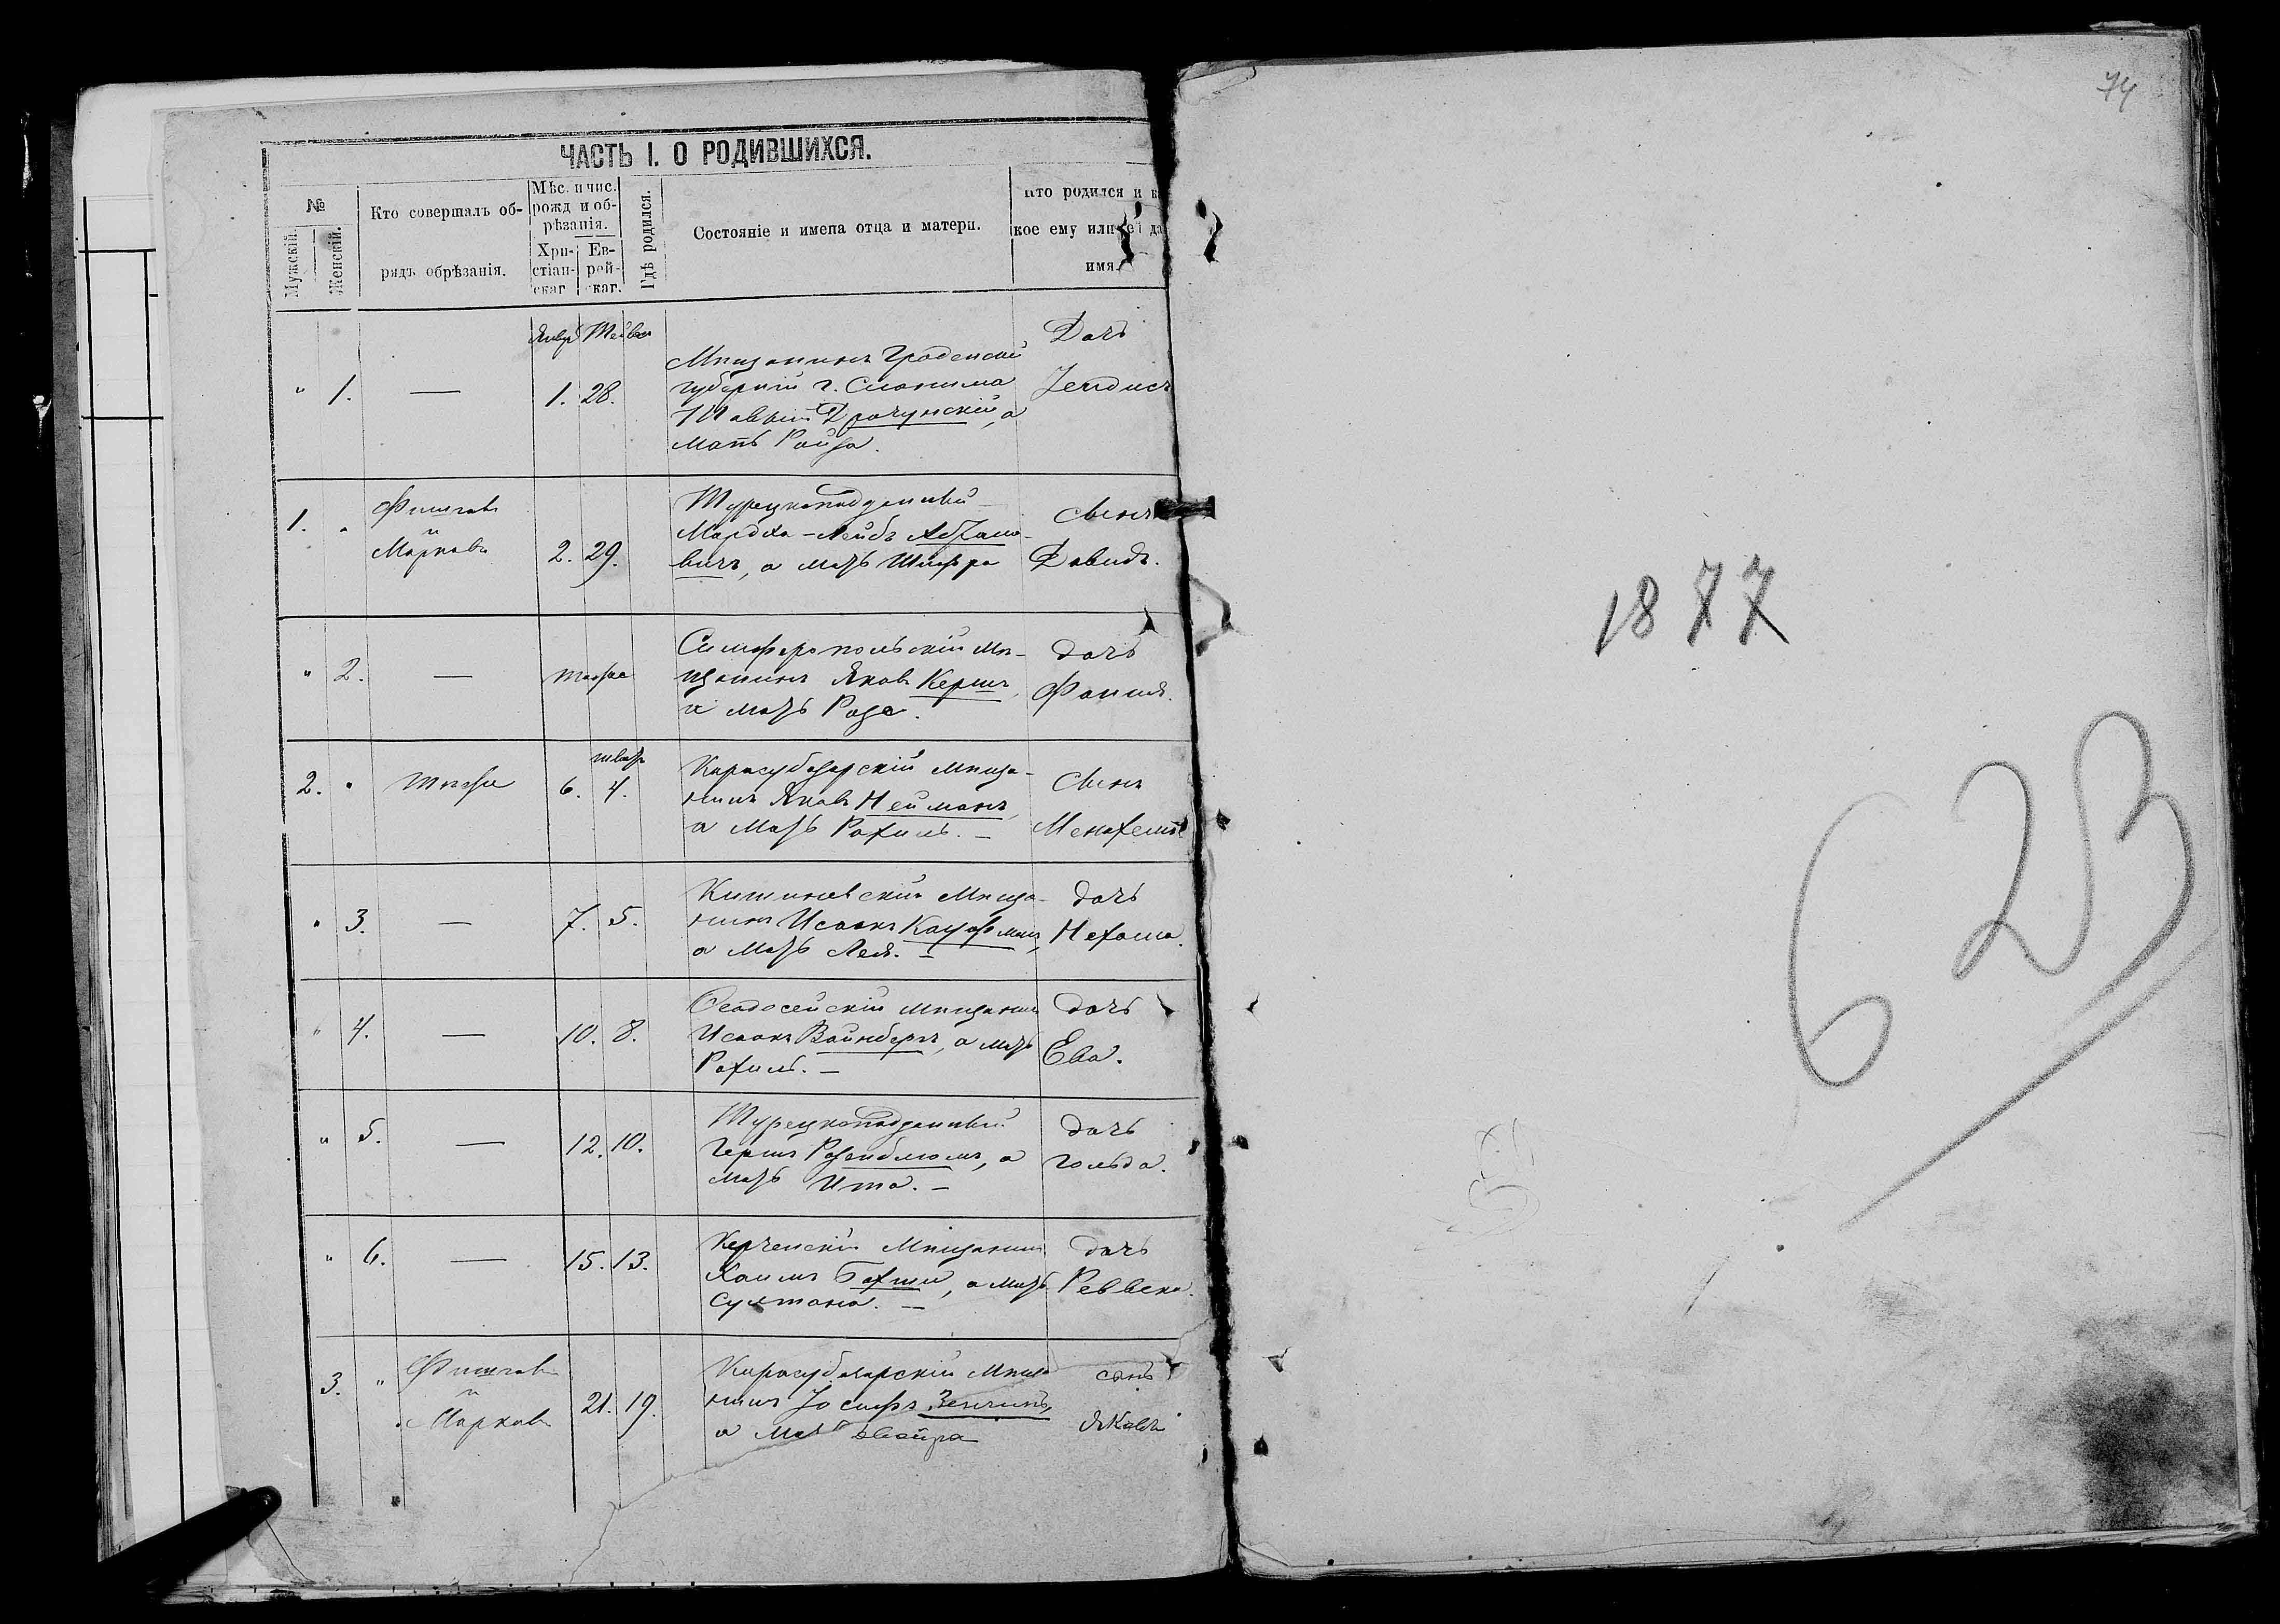 ЧАСТЬ I. О РОДИВШИХСЯ.
№
Мужскій.
Женскій.
Кто совершалъ об-
рядъ обрѣзанія.
Мѣс. и чис.
рожд и об-
рѣзанія.
Хри-
стіан-
скаг
Ев-
рей-
скаг.
Гдѣ родился.
Состояніе и имена отца и матери.
Кто родился и ка
кое ему или ей да
имя.
" 1. — 1. 28.
Мѣщанинъ Гроденской
губерніи г. Слонима
а
мать Ройза.
Дочь
1. " Фишговъ
и
Марковъ
2. 29.
Турецкоподданный
Мордха-Лейбъ Абрамо-
вичъ, а мать Шифра
Сынъ
Давидъ.
" 2. — тоже
Симферопольскій мѣ-
щанинъ Яковъ Кершъ,
а мать Роза.
дочь
Фаня.
2. " тоже 6. 4.
Карасубазарскій мѣща-
нинъ Яковъ Нейманъ,
а мать Рахиль. —
Сынъ
Менахемъ
" 3. — 7. 5.
Кишиневскій мѣща-
нинъ Исаакъ Кауфманъ,
а мать Лея. —
дочь
Нехама.
" 4. — 10. 8.
Феодосейскій мѣщанинъ
Исаакъ Вайнбергъ, а мать
Рахиль. —
дочь
Ева.
" 5. — 12. 10.
Турецкоподданный
Гершъ Розенблюмъ, а
мать Ита. —
дочь
Гольда.
" 6. — 15. 13.
Керченскій мѣщанинъ
Хаимъ Бахши, а мать
Султана. —
дочь
Реввека.
3. " Фишговъ
и
Марковъ
21. 19.
Карасубазарскій мѣща
нинъ Іосифъ Зенгинъ,
а мать
сынъ
Яковъ
74
1877
623